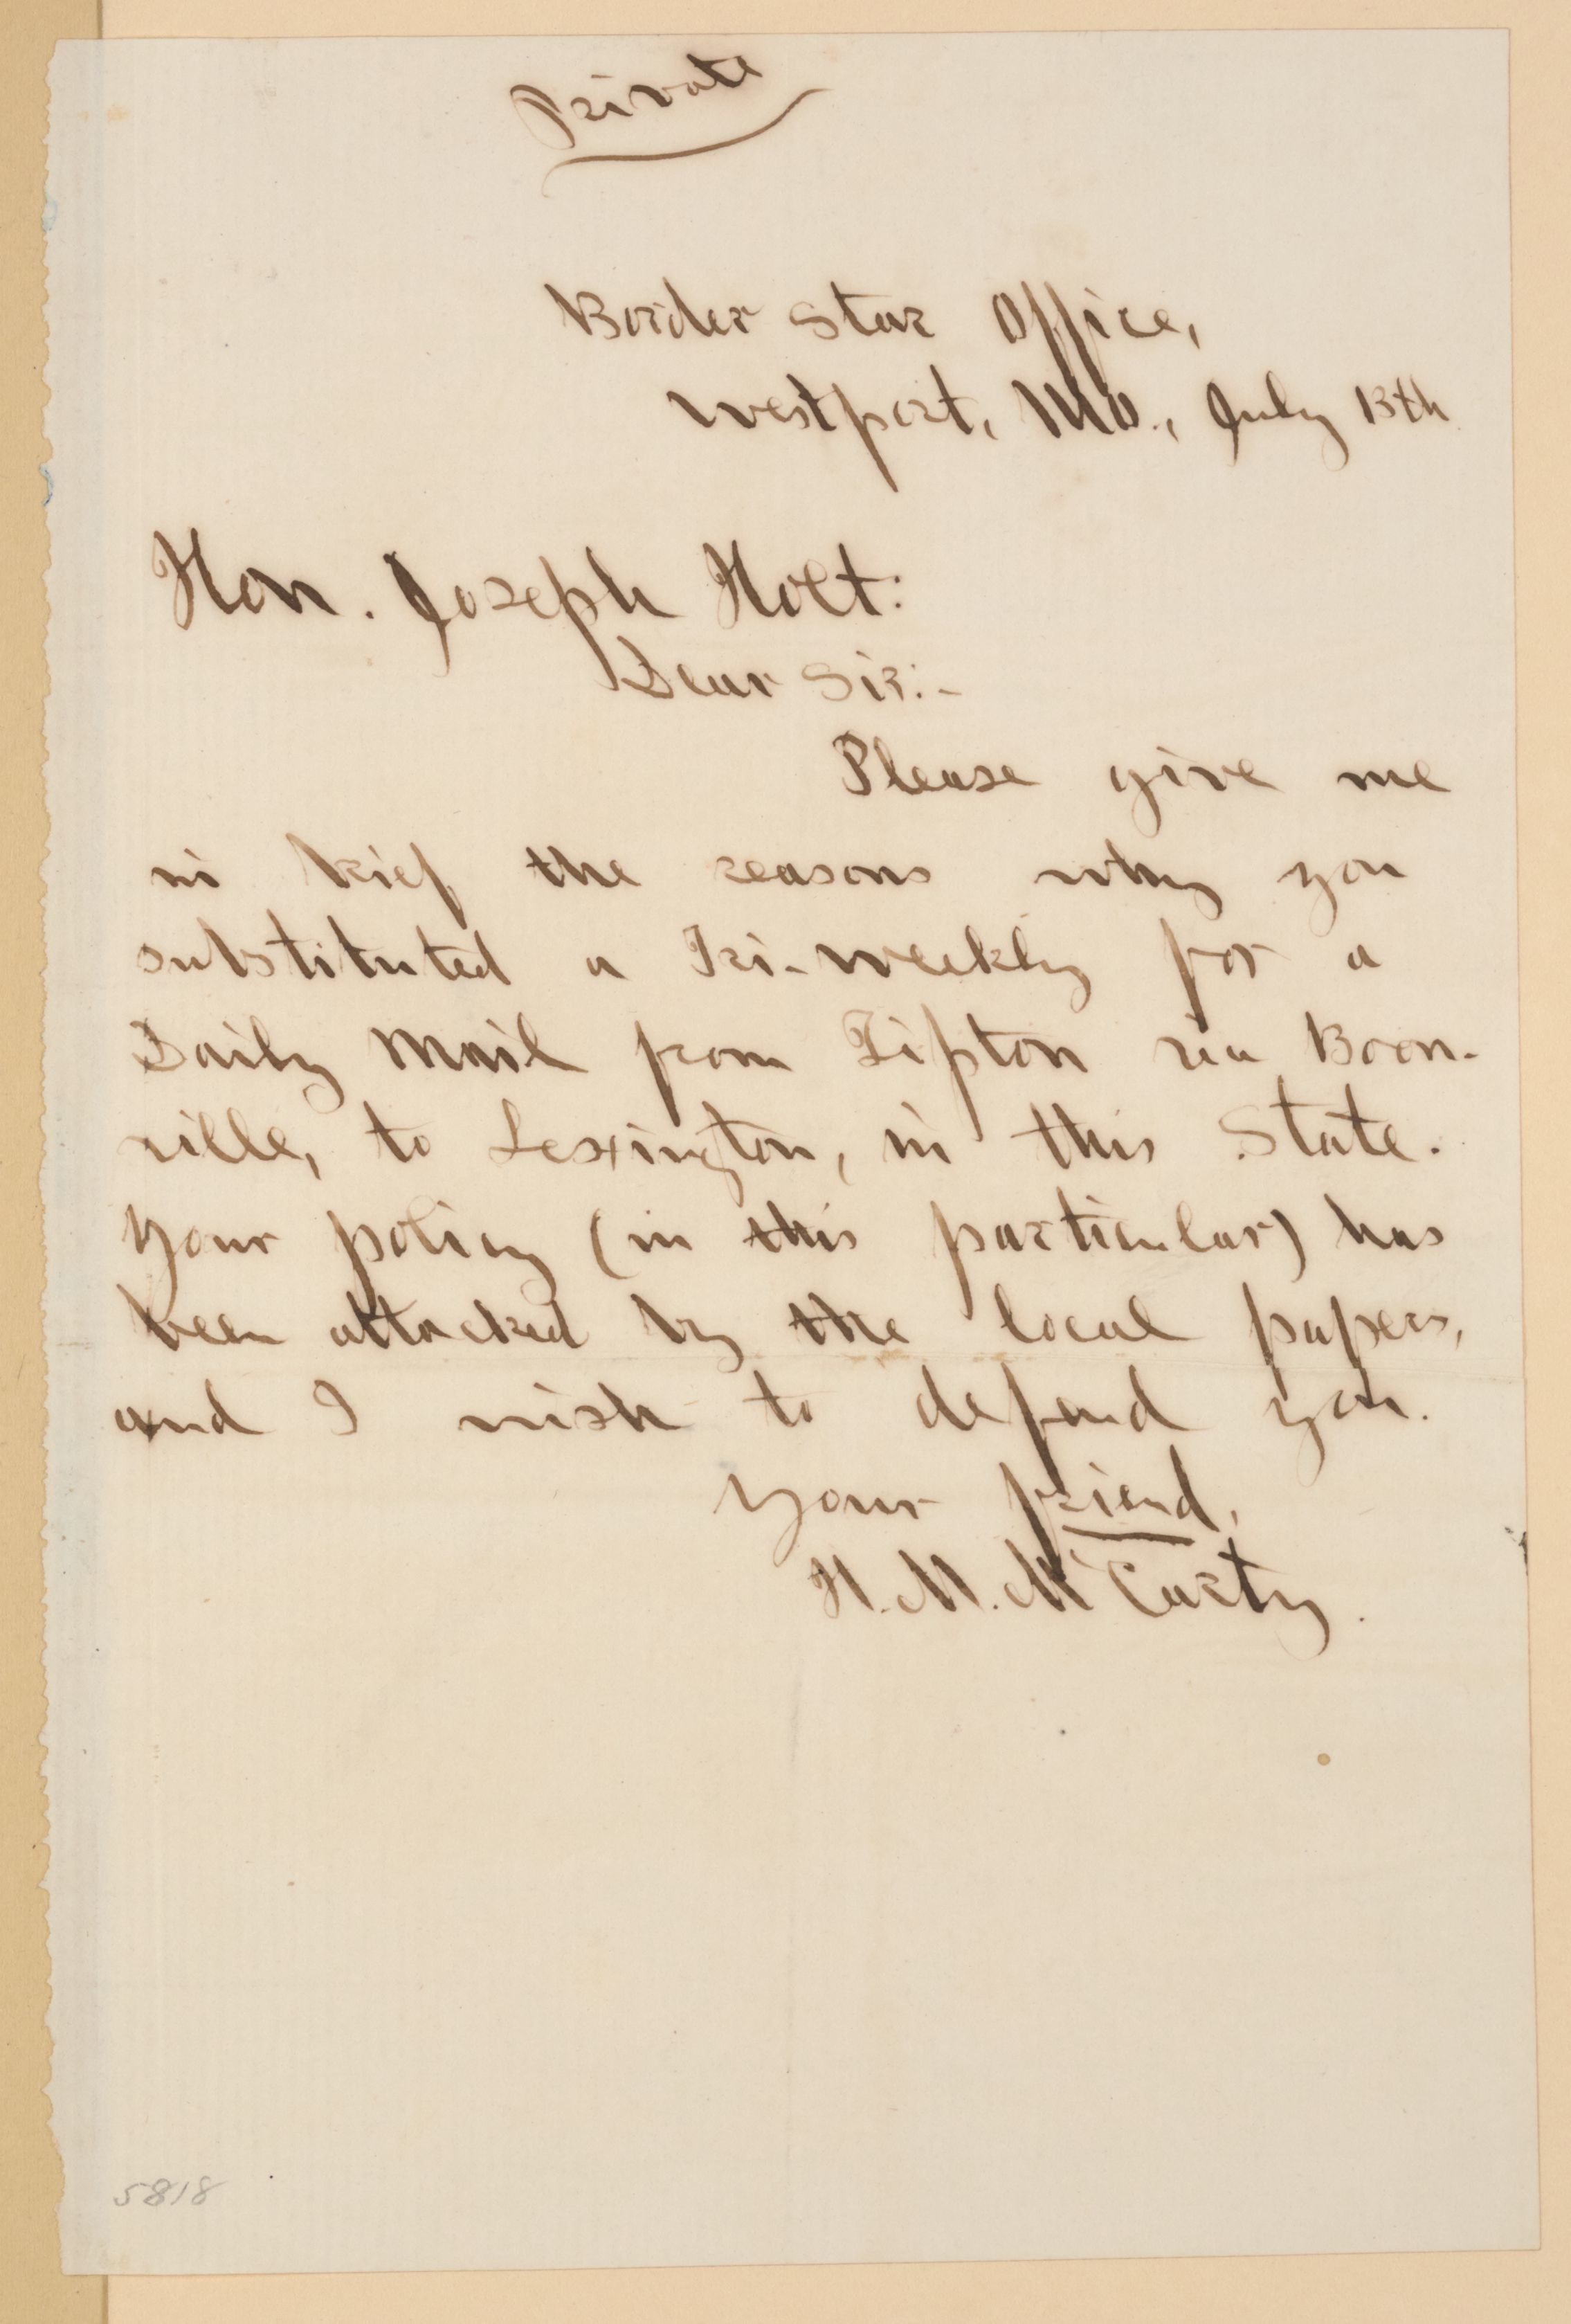 Private
Border Star Office,
Westport, Mo., July 13th
Hon. Joseph Holt:
Dear Sir:-
Please give me
in brief the reasons why you
substituted a Tri-weekly for a
Daily Mail from Tipton via Boon-
ville, to Lexington, in this State.
Your policy (in this particular) has
been attacked by the local papers,
and I wish to defend you.
Your friend,
H. M. McCarty.
5818